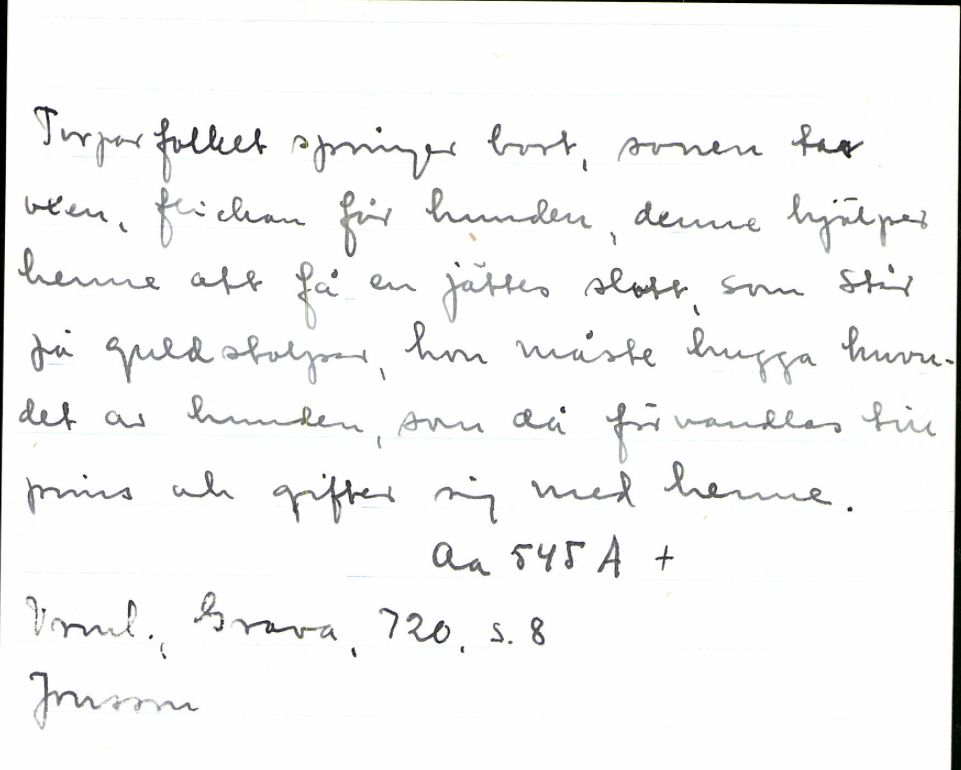 Torparfolket springer bort, sonen tar
veen, flickan får hunden, denne hjälper
henne att få en jättes slott, som står
på guldstolpar, hon måste hugga huvu-
det av hunden, som då förvandlas till
prins och gifter sig med henne.
Aa 545 A +
Vrml., Grava, 720, s. 8
Jonsson